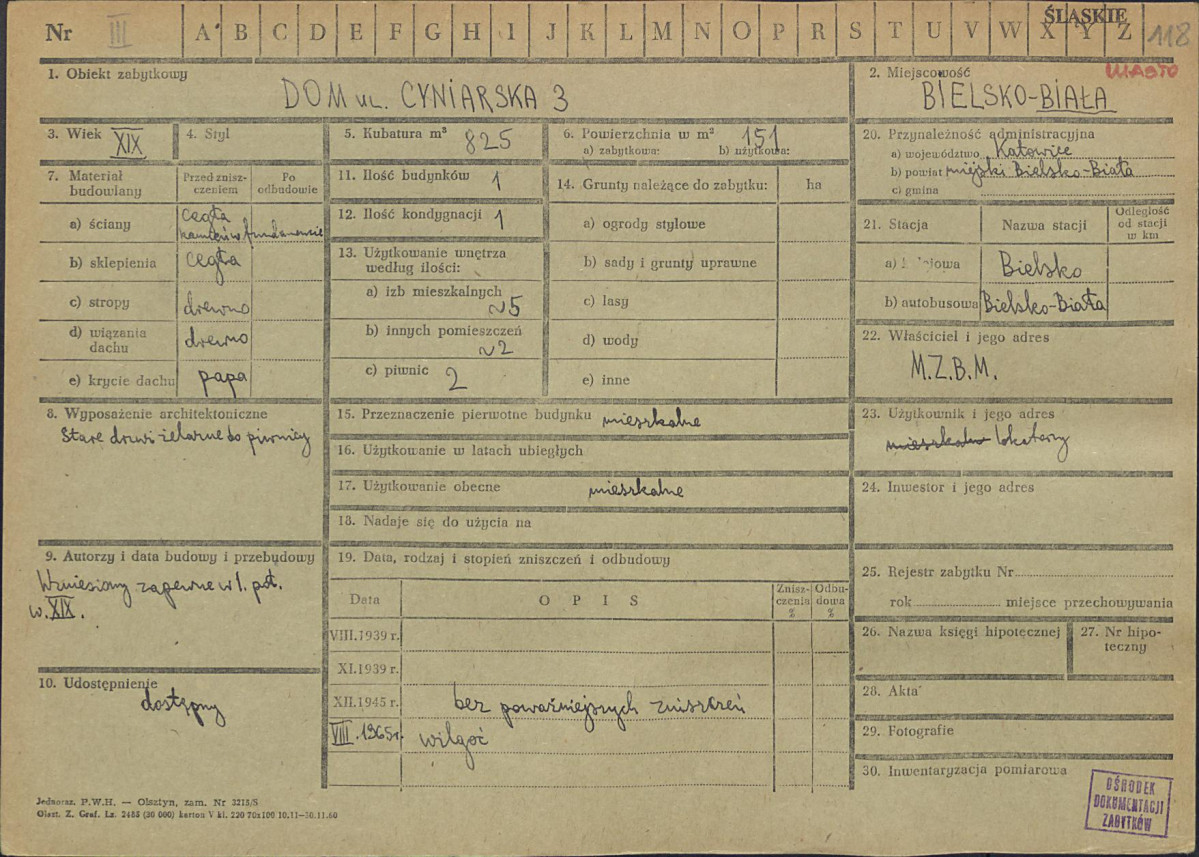 Nr III A B C D E F G H I J K L M N O P R S T U V W X Y Z 118
ŚLĄSKIE
MIASTO
1. Obiekt zabytkowy
DOM UL. CYNIARSKA 3
2. Miejscowość
BIELSKO-BIAŁA
3. Wiek XIX
4. Styl
5. Kubatura m³ 825
6. Powierzchnia w m² 151
a) zabytkowa: b) użytkowa:
7. Materiał budowlany
Przed zniszczeniem
Po odbudowie
a) ściany
cegła
kamień w fundamencie
b) sklepienia cegła
c) stropy drewno
d) wiązania dachu drewno
e) krycie dachu papa
8. Wyposażenie architektoniczne
Stare drzwi żelazne do piwnicy
9. Autorzy i data budowy i przebudowy
Wzniesiony zapewne w 1. poł.
w. XIX.
10. Udostępnienie
dostępny
11. Ilość budynków 1
12. Ilość kondygnacji 1
13. Użytkowanie wnętrza
według ilości:
a) izb mieszkalnych
~5
b) innych pomieszczeń
~2
c) piwnic 2
14. Grunty należące do zabytku: ha
a) ogrody stylowe
b) sady i grunty uprawne
c) lasy
d) wody
e) inne
15. Przeznaczenie pierwotne budynku mieszkalne
16. Użytkowanie w latach ubiegłych
17. Użytkowanie obecne mieszkalne
18. Nadaje się do użycia na
19. Data, rodzaj i stopień zniszczeń i odbudowy
Data OPIS Zniszczenia % Odbudowa %
VIII.1939 r.
XI.1939 r.
XII.1945 r. bez poważniejszych zniszczeń
VIII.1965 r. wilgoć
20. Przynależność administracyjna
a) województwo Katowice
b) powiat miejski Bielsko-Biała
c) gmina
21. Stacja Nazwa stacji Odległość od stacji w km
a) kolejowa Bielsko
b) autobusowa Bielsko-Biała
22. Właściciel i jego adres
M.Z.B.M.
23. Użytkownik i jego adres
mieszkalne lokatorzy
24. Inwestor i jego adres
25. Rejestr zabytku Nr
rok miejsce przechowywania
26. Nazwa księgi hipotecznej
27. Nr hipoteczny
28. Akta
29. Fotografie
30. Inwentaryzacja pomiarowa
OŚRODEK
DOKUMENTACJI
ZABYTKÓW
Jednoraz. P.W.H. — Olsztyn, zam. Nr 3215/S
Olszt. Z. Graf. Lz. 2485 (30 000) karton V kl. 220 70x100 10.11—30.11.60